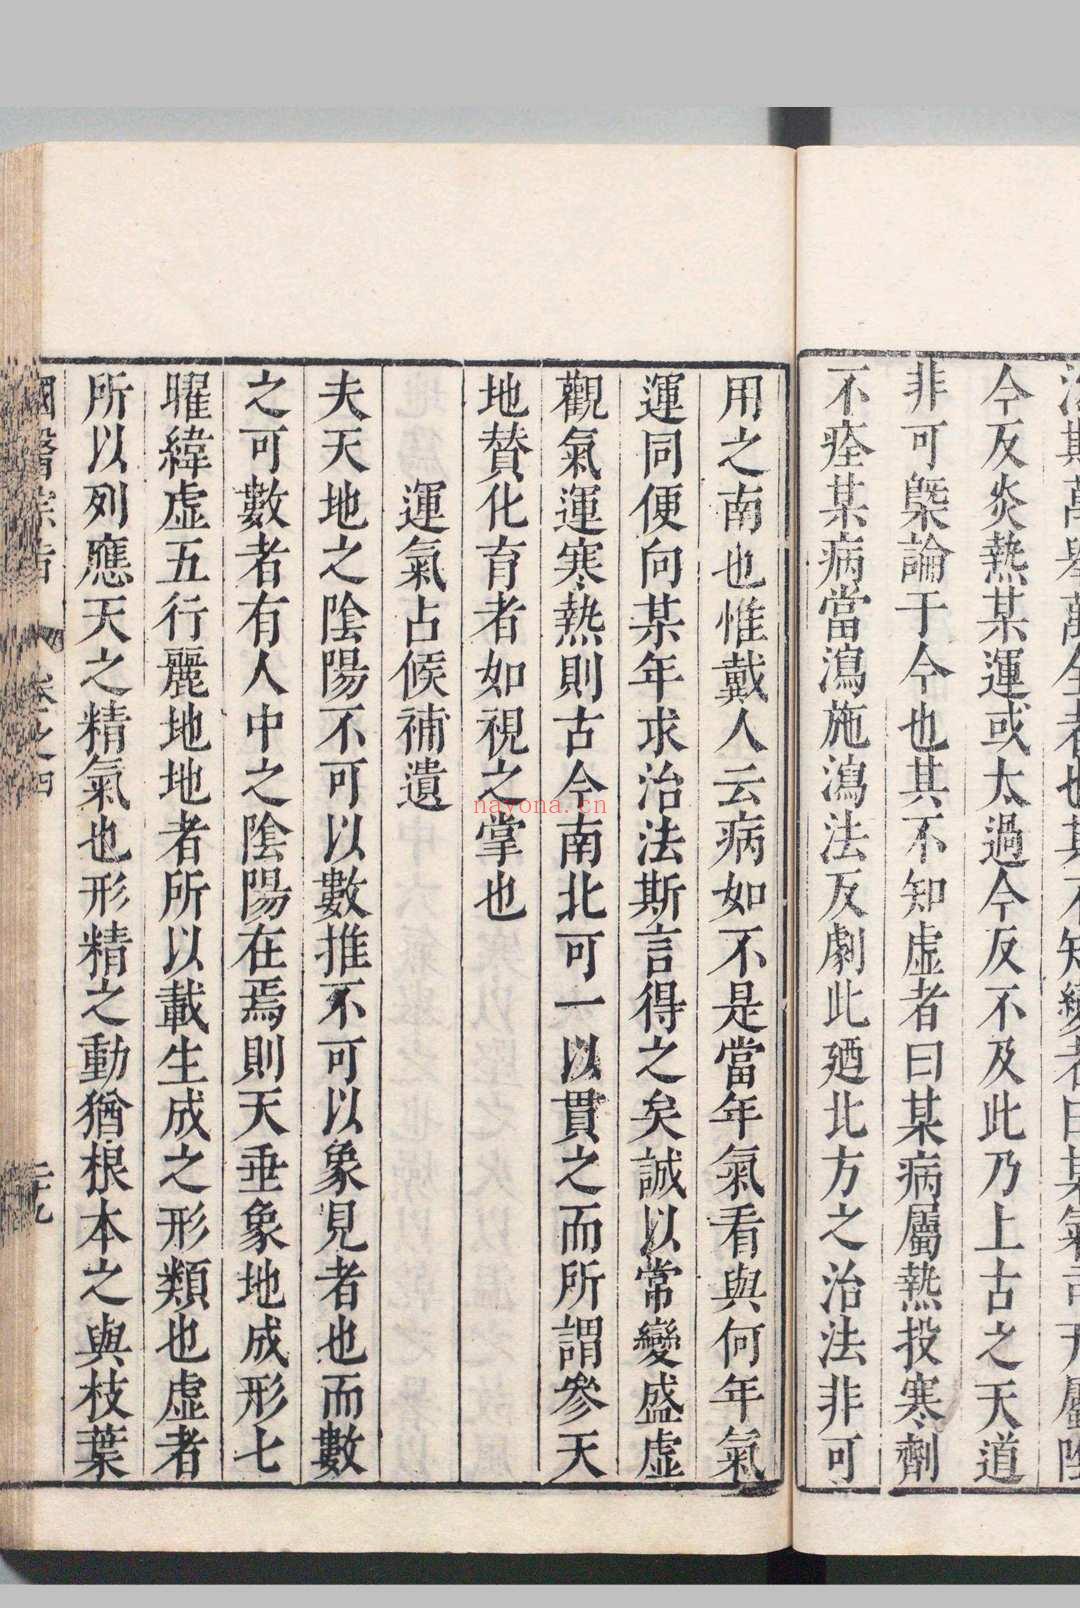 治斯萬舉萬全者也其不知變者曰某氣司天屬陰
今反炎熱某運或太過今反不及此乃上古之天道
非可槩論于今也其不知虛者曰某病屬熱投寒劑
不痊某病當瀉施瀉法反劇此廼北方之治法非可
用之南也惟戴人云病如不是當年氣看與何年氣
運同便向某年求治法斯言得之矣誠以常變盛虛
觀氣運寒熱則古今南北可一以貫之而所謂參天
地贊化育者如視之掌也
運氣占候補遺
夫天地之陰陽不可以數推不可以象見者也而數
之可數者有人中之陰陽在焉則天垂象地成形七
曜緯虛五行麗地地者所以載生成之形類也虛者
所以列應天之精氣也形精之動猶根本之與枝葉
國醫宗旨 卷之四 二九
nayona.cn